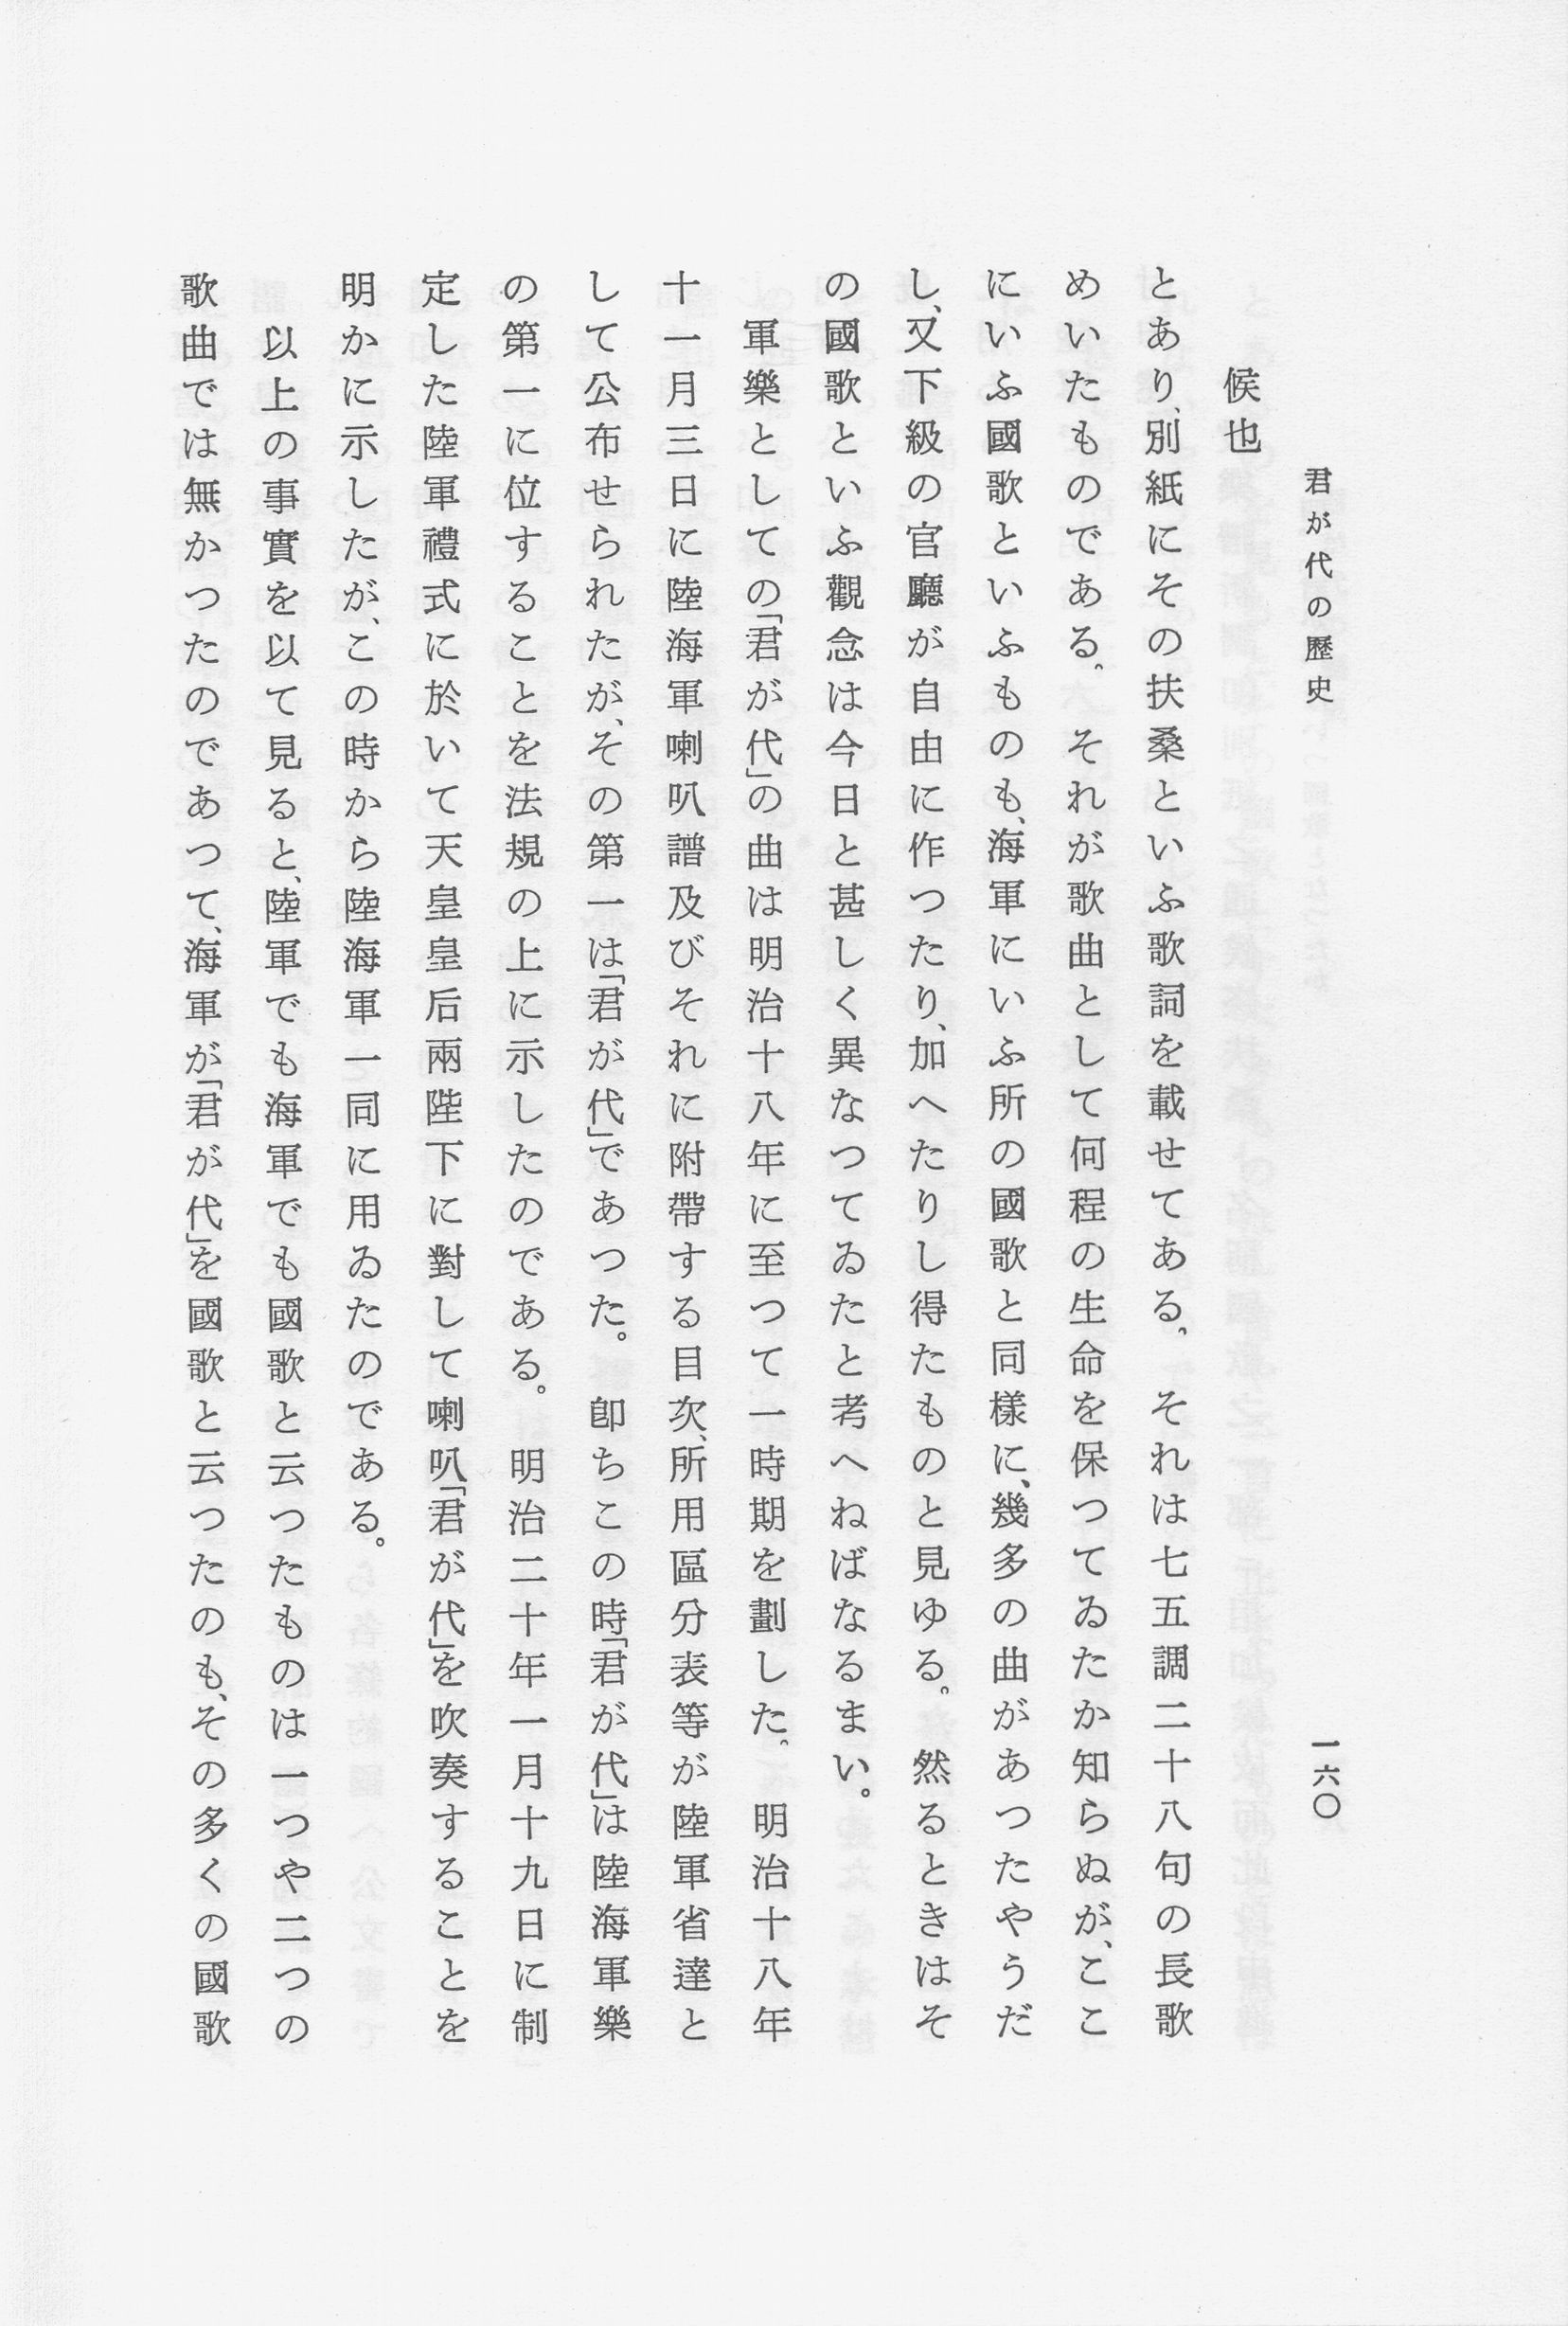 君が代の歷史
一六〇
候也
とあり、別紙にその扶桑といふ歌詞を載せてある。それは七五調二十八句の長歌
めいたものである。それが歌曲として何程の生命を保つてゐたか知らぬが、ここ
にいふ國歌といふものも、海軍にいふ所の國歌と同樣に、幾多の曲があつたやうだ
し、又下級の官廳が自由に作つたり、加へたりし得たものと見ゆる。然るときはそ
の國歌といふ觀念は今日と甚しく異なつてゐたと考へねばなるまい。
軍樂としての「君が代」の曲は明治十八年に至つて一時期を劃した。明治十八年
十一月三日に陸海軍喇叭譜及びそれに附帶する目次、所用區分表等が陸軍省達と
して公布せられたが、その第一は「君が代」であつた。卽ちこの時「君が代」は陸海軍樂
の第一に位することを法規の上に示したのである。明治二十年一月十九日に制
定した陸軍禮式に於いて天皇皇后兩陛下に對して喇叭「君が代」を吹奏することを
明かに示したが、この時から陸海軍一同に用ゐたのである。
以上の事實を以て見ると、陸軍でも海軍でも國歌と云つたものは一つや二つの
歌曲では無かつたのであつて、海軍が「君が代」を國歌と云つたのも、その多くの國歌